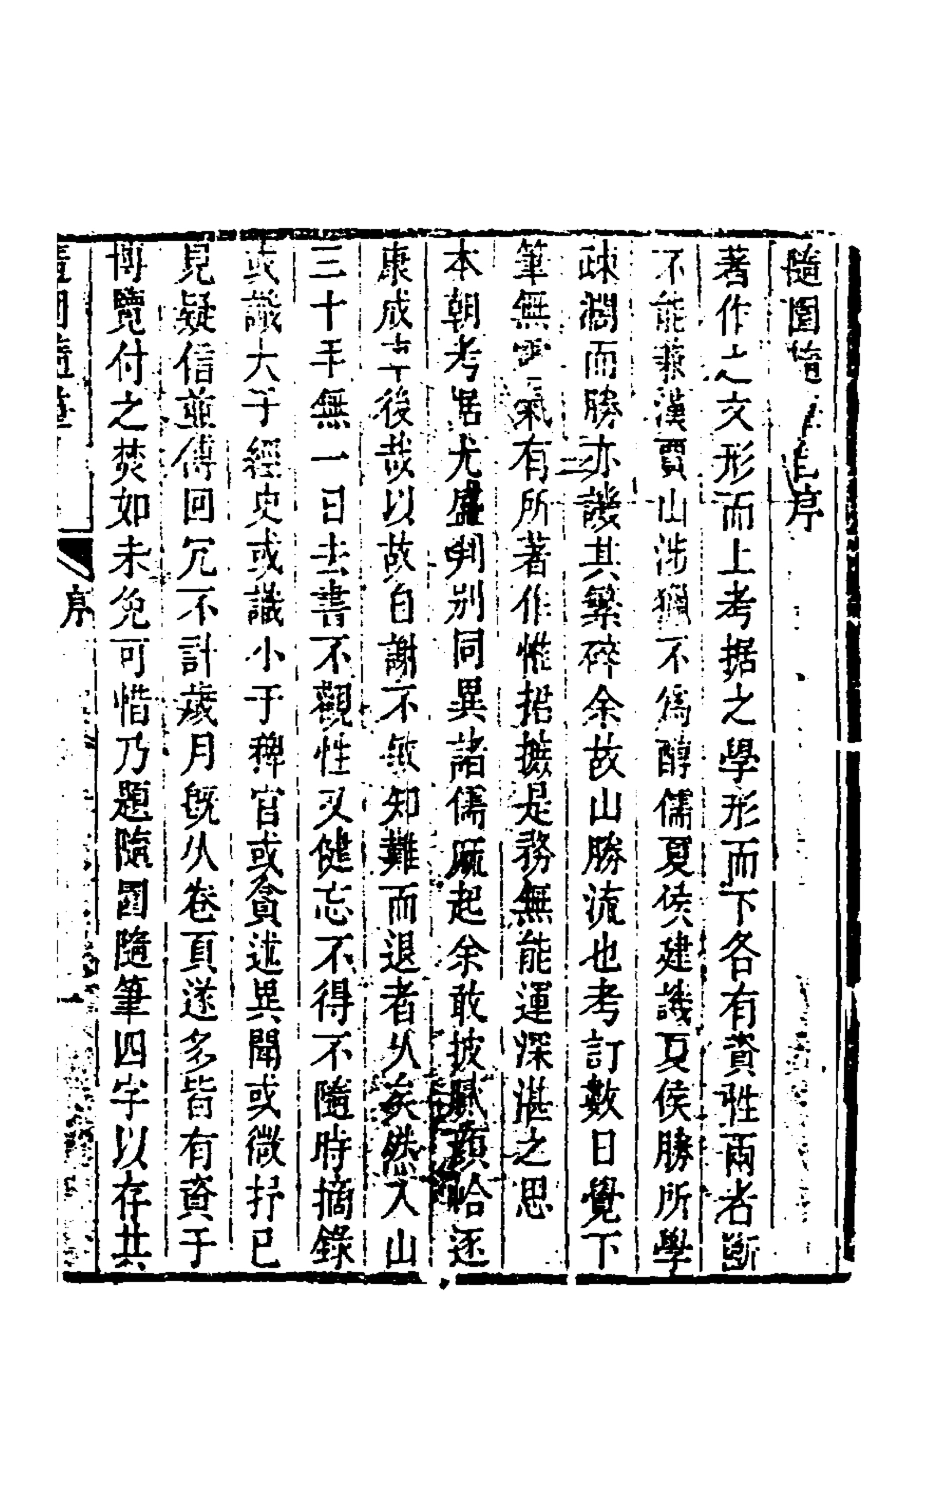 隨園隨 自序
著作之文形而上考据之學形而下各有資性兩者斷
不能兼漢賈山涉獵不爲醇儒夏侯建譏夏侯勝所學
疎濶而勝亦譏其繁碎余故山勝流也考訂數日覺下
筆無靈氣有所著作惟捃摭是務無能運深湛之思
本朝考据尤盛判别同異諸儒麻起余敢披膩顏帢逐
康成車後哉以故自謝不敏知難而退者久矣然入山
三十年無一日去書不觀性又健忘不得不隨時摘錄
或識大于經史或識小于稗官或貪述異聞或微抒己
見疑信並傳回冗不計歲月旣久卷頁遂多皆有資于
博覽付之焚如未免可惜乃題隨園隨筆四字以存其
隨園隨筆
序